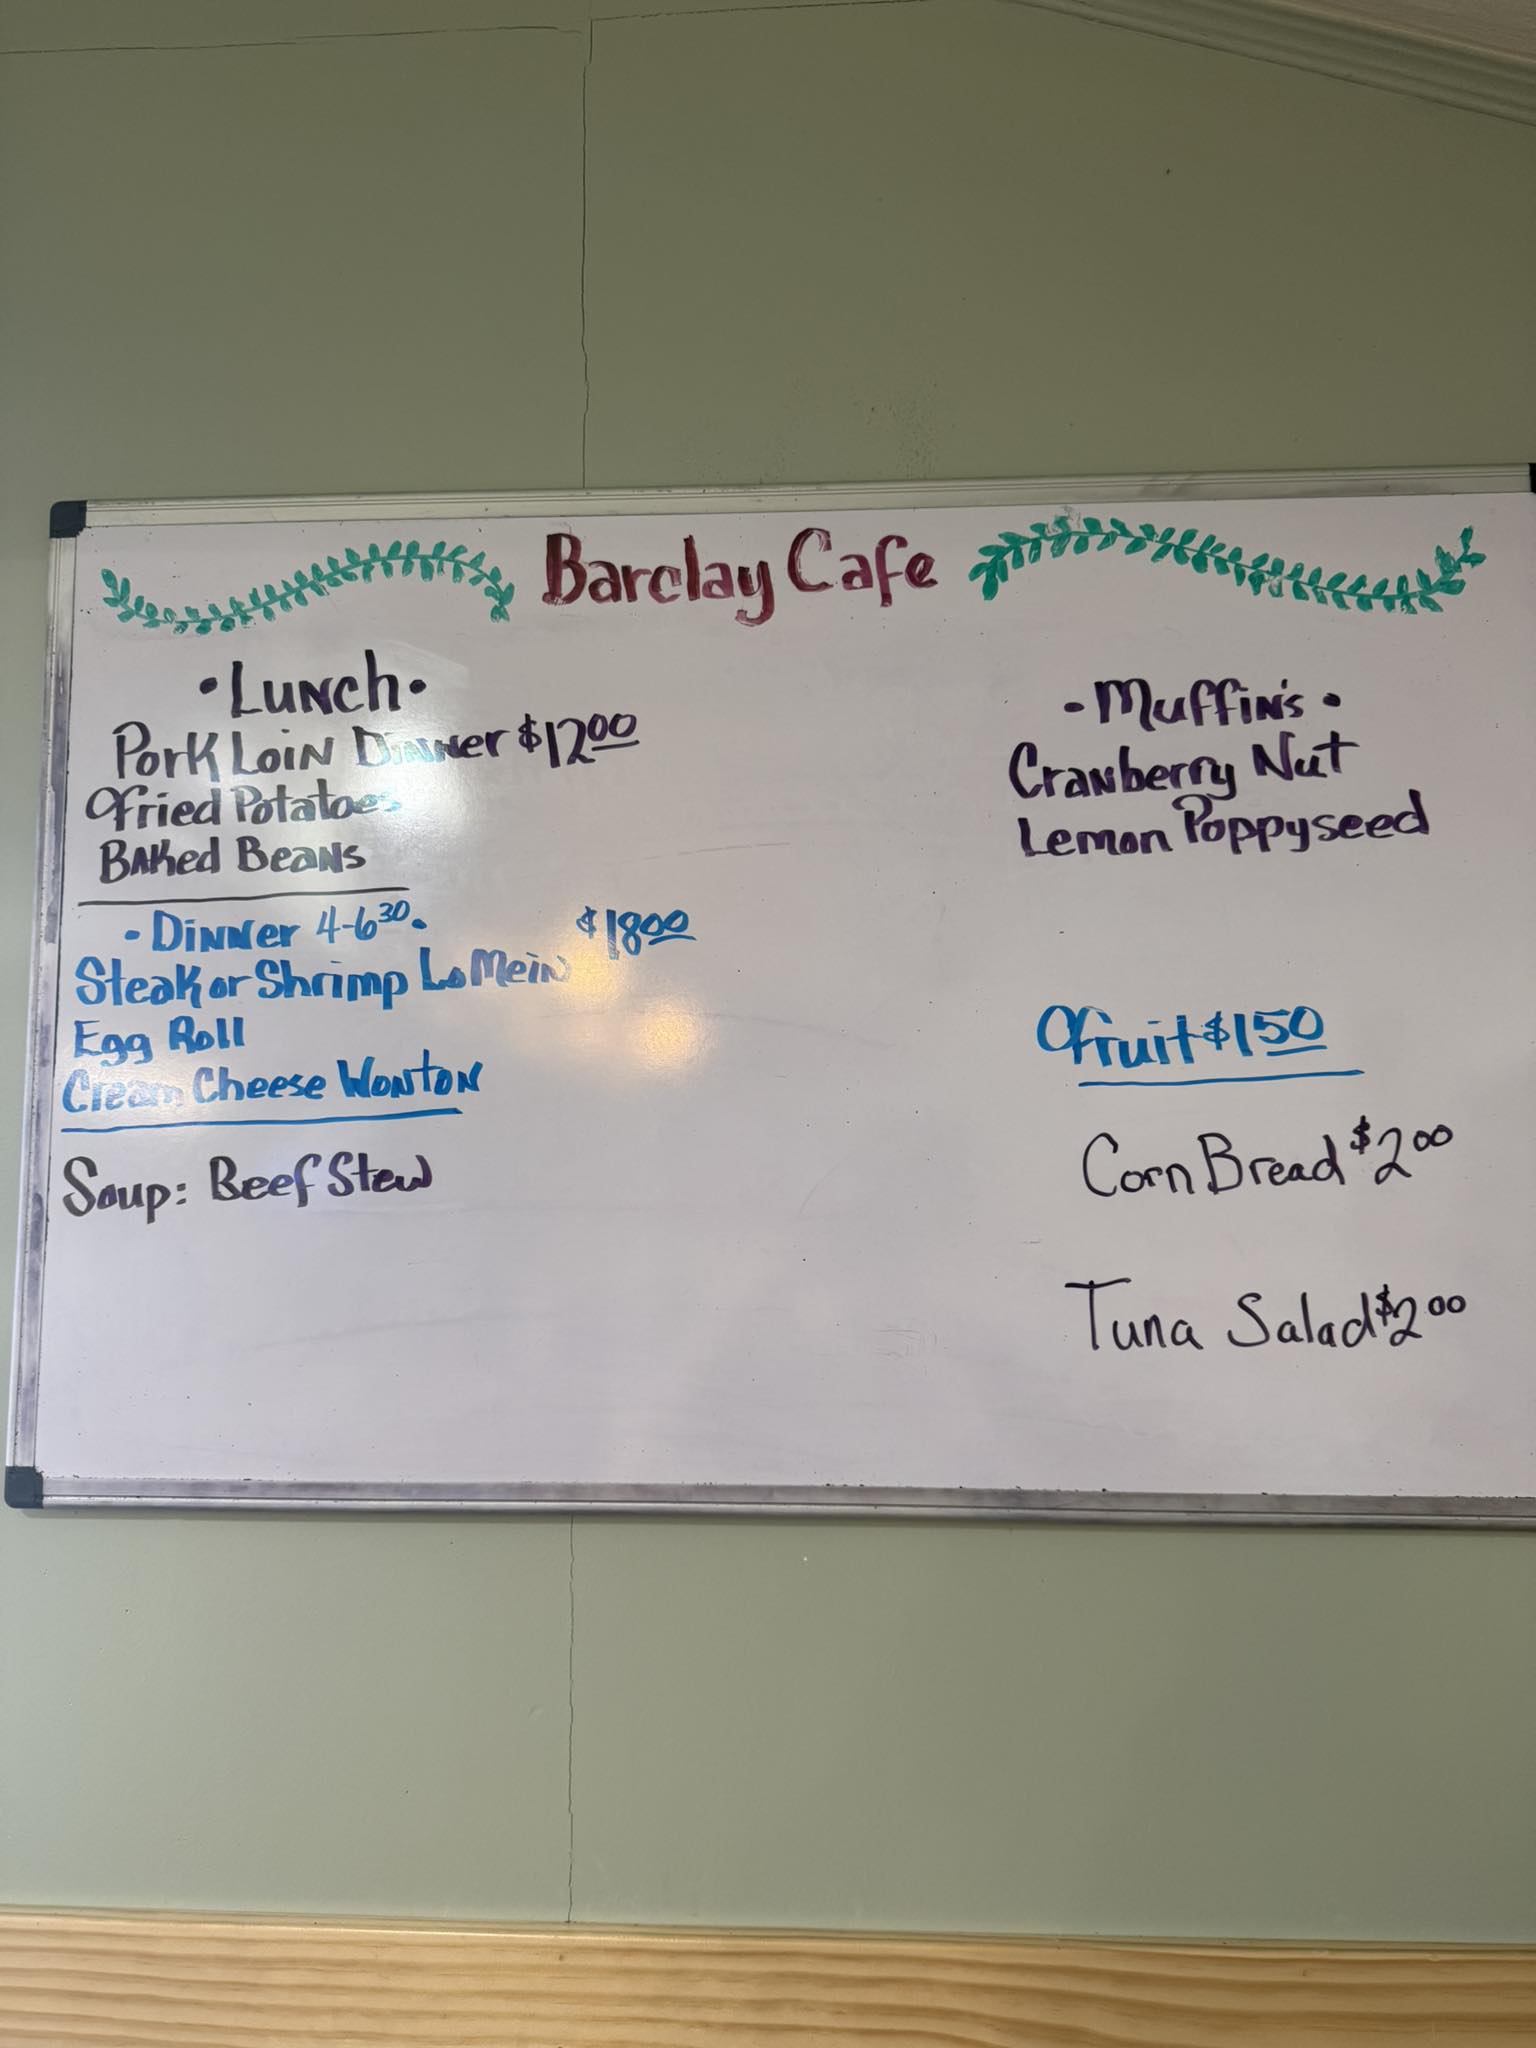 Barclay Cafe
• Lunch •
Pork Loin Dinner $12.00
Fried Potatoes
Baked Beans
• Dinner 4-6:30 • $18.00
Steak or Shrimp Lo Mein
Egg Roll
Cream Cheese Wonton
Soup: Beef Stew
- Muffin's •
Cranberry Nut
Lemon Poppyseed
Fruit $1.50
Corn Bread $2.00
Tuna Salad $2.00